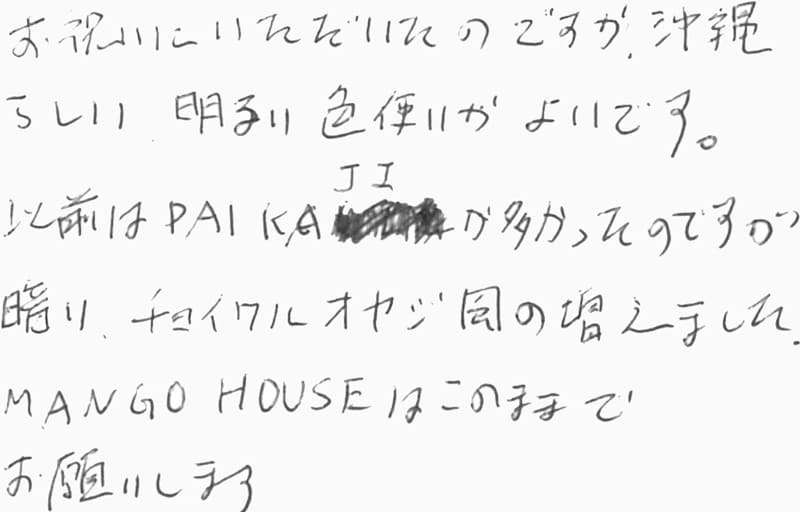 お祝いにいただいたのですが、沖縄
らしい 明るい 色使いが よいです。
JI
以前はPAIKAが多かったのですが
暗い、チョイワルオヤジ風の増えました.
MANGO HOUSEはこのままで
お願いします